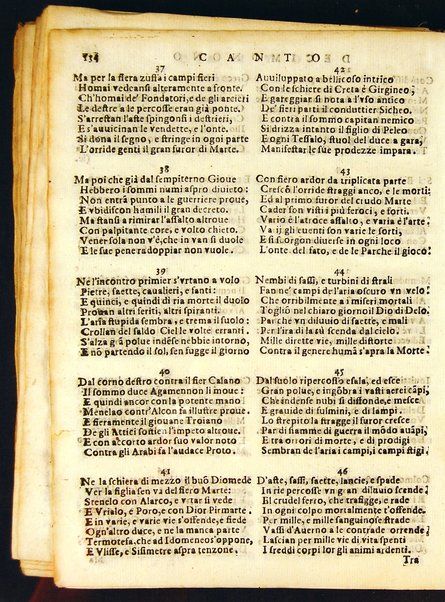 134 CANTO
37
Ma per la fiera zuffa i campi fieri
Homai vedeansi alteramente a fronte.
Ch'homai de' Fondatori, e de gli arcieri
Le destre a le percosse eran già ponte.
S'arrestan l'aste spingonsi i destrieri,
E s'auuicinan le vendette, e l'onte.
Si dona il segno, e stringe in ogni parte
L'orride genti il gran furor di Marte.
38
Ma poi che già dal sempiterno Gioue
Hebbero i sommi numi aspro diuieto:
Non entrà punto a le guerriere proue,
E vbidiscon humili il gran decreto.
Ma stansi a rimirar l'assalto altroue
Con palpitante core, e volto chieto.
Vener sola non v'è, che in van si duole
E le sue pene raddoppiar non vuole.
39
Ne l'incontro primier s'vrtano a volo
Pietre, saette, caualieri, e fanti:
E quinci, e quindi di ria morte il duolo
Prouan altri feriti, altri spiranti.
L'aria stupida sembra, e trema il suolo:
Crollan del saldo Ciel le volte erranti.
S'alza grā polue indi e nebbie intorno,
E nō partendo il sol, sen fugge il giorno
40
Dal corno destro contra il fier Caiano
Il sommo duce Agamennon li moue:
E quindi ancor con la potente mano
Menelao contr'Alcon fa illustre proue.
E fieramente il giouane Troiano
De gli Attici sostiē l'impeto altroue.
E con accorto ardor suo valor noto
Contra gli Arabi fa l'audace Proto.
41
Ne la schiera di mezzo il buō Diomede
Ver la figlia sen va del fiero Marte:
Stenelo con Alarco, e vrtar si vede
E Vrialo, e Poro, e con Dior Pirmarte.
E in varie, e varie vie s'offende, e fiede
Ogn'altro duce, e ne la manca parte
Termotesa, che ad Idomeneo s'oppone,
E Vlisse, e Sisimetre aspra tenzone.
42
Auuiluppato a bellicoso intrico
Con le schiere di Creta è Girgineo;
E gareggiar si nota a l'vso antico
De' fieri parti il conduttier Sicheo.
E contra il sommo capitan nemico
Si drizza intanto il figlio di Peleo
E ogni Tessalo, stuol del duce a gara,
Manifestar le sue prodezze impara.
43
Con fiero ardor da triplicata parte
Crescō l'orride straggi anco, e le morti:
Ed al primo furor del crudo Marte
Cader son visti i più feroci, e forti.
Vario è l'atroce assalto, e varia è l'arte.
Varij gli euenti son varie le sorti,
E si scorgon diuerse in ogni loco
L'onte del fato, e de le Parche il gioco.
44
Nembi di sassi, e turbini di strali
Fan ne' campi de l'aria oscuro vn velo.
Che orribilmente a i miseri mortali
Toglio nel chiaro giorno il Dio di Delo.
Par che vn diluuio di saette, e mali
Per l'ira di là sù scenda dal cielo.
Mille dirette vie, mille distorte
Contra il gener humā s'apra la Morte.
45
Dal suolo ripercosso esala, ed esce
Gran polue, e ingōbra i vasti aerei cāpi,
Che andense nubi si diffonde, e mesce
E grauide di fulmini, e di lampi.
Lo strepito la stragge il furor cresce
Par di fiamme di guerra il mōdo auāpi,
E tra orrori di morte, e di prodigi
Sembran de l'aria i campi, i campi stigi.
46
D'aste, sassi, saette, lancie, e spade
In rie percosse vn gran diluuio scende.
El crudel ferro, che trafigge, e rade
In ogni colpo mortalmente t'offende.
Per mille, e mille sanguinose strade
Vassi d'Auerno a le contrade orrende;
Lascian per mille vie di vita spenti
I freddi corpi lor gli animi ardenti.
Tra